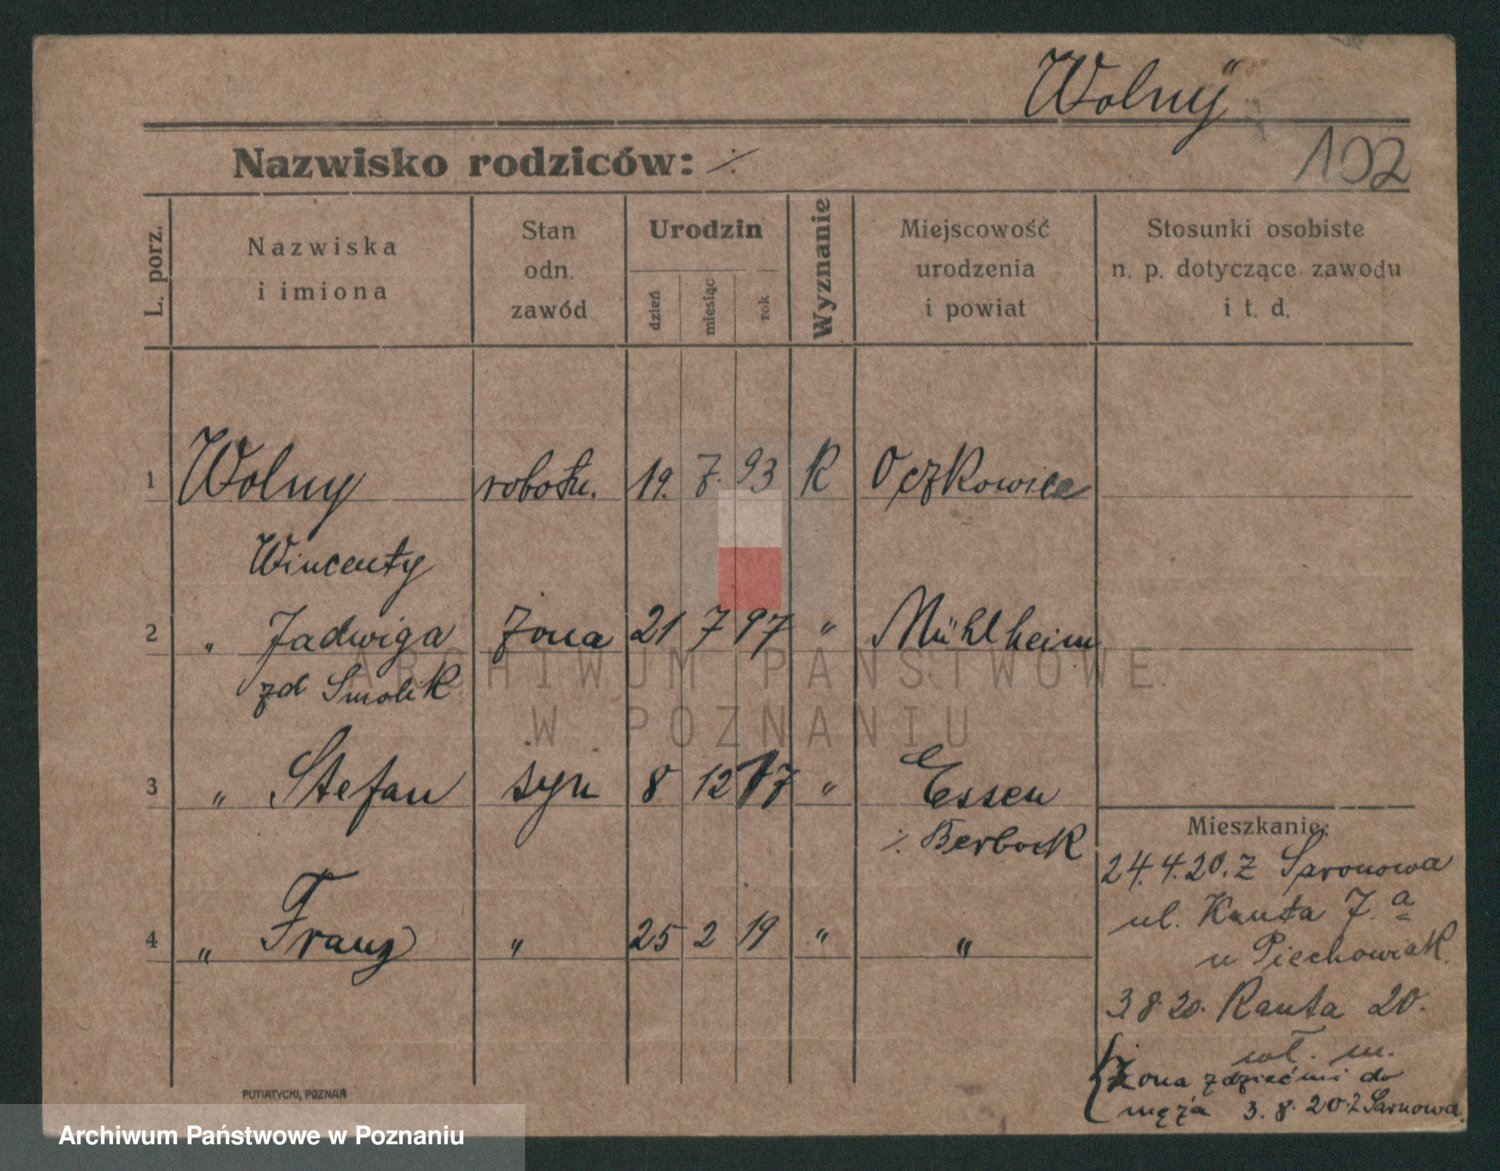 Wolny
Nazwisko rodziców: ·/·
102
L. porz.
Nazwiska
i imiona
Stan
odn.
zawód
Urodzin
dzień
miesiąc
rok
Wyznanie
Miejscowość
urodzenia
i powiat
Stosunki osobiste
n. p. dotyczące zawodu
i t. d.
1 Wolny robotn. 19. 7. 93 K Oczkowice
Wincenty
2 " Jadwiga żona 21 7 97 " Mühlheim
zd Smolik
3 " Stefan syn 8 12 17 " Essen
·/· Berbock
4 " Franz " 25 2 19 " "
Mieszkanie:
24.4.20. z Sarnowa
ul. Kanta 7. a
u Piechowiak.
3.8.20. Kanta 20.
wł. m.
Żona z dziećmi do
męża 3.8.20. z Sarnowa.
PUTIATYCKI, POZNAŃ
ARCHIWUM PAŃSTWOWE
W POZNANIU
Archiwum Państwowe w Poznaniu